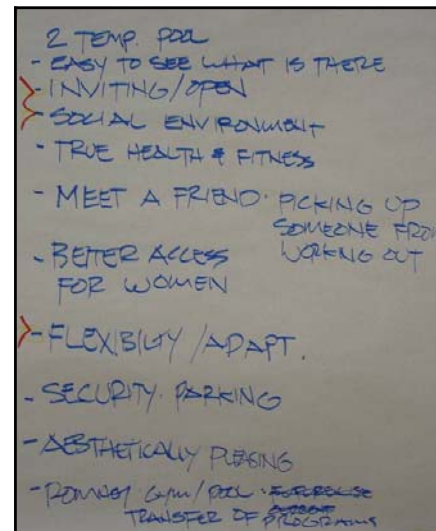 2 TEMP. POOL
- EASY TO SEE WHAT IS THERE
- INVITING/OPEN
- SOCIAL ENVIRONMENT
- TRUE HEALTH & FITNESS
- MEET A FRIEND · PICKING UP
SOMEONE FROM
WORKING OUT
- BETTER ACCESS
FOR WOMEN
- FLEXIBILITY / ADAPT.
- SECURITY · PARKING
- AESTHETICALLY PLEASING
- ROMNEY GYM / POOL ·
TRANSFER OF PROGRAMS